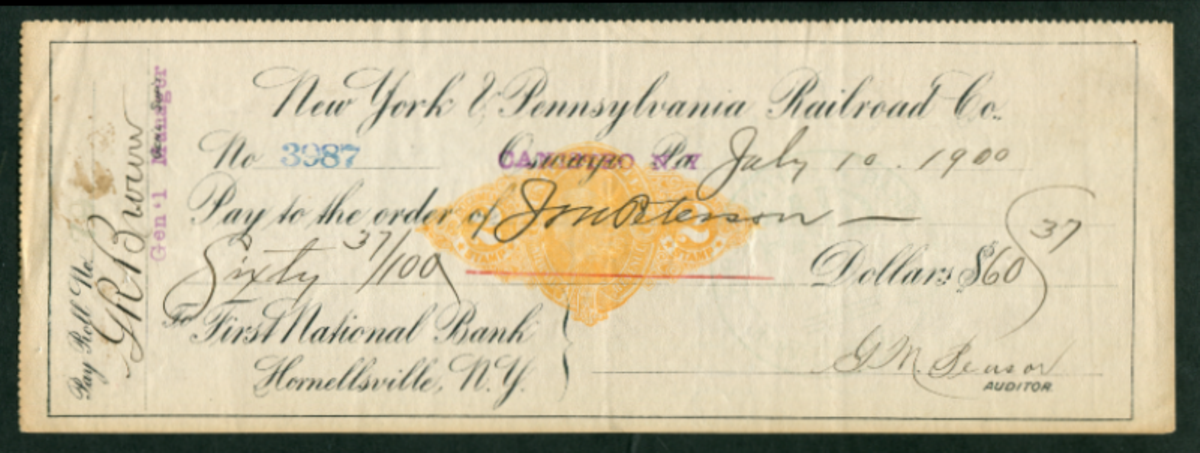 New York & Pennsylvania Railroad Co.
No 3987 Pa. July 10. 1900
Pay to the order of Peterson
Sixty 37/100 Dollars $60 37
2 STAMP 2 STAMP
To First National Bank
Hornellsville, N.Y.
G. M. Pearson
AUDITOR.
Pay Roll No.
G R Brown
Gen'l Manager